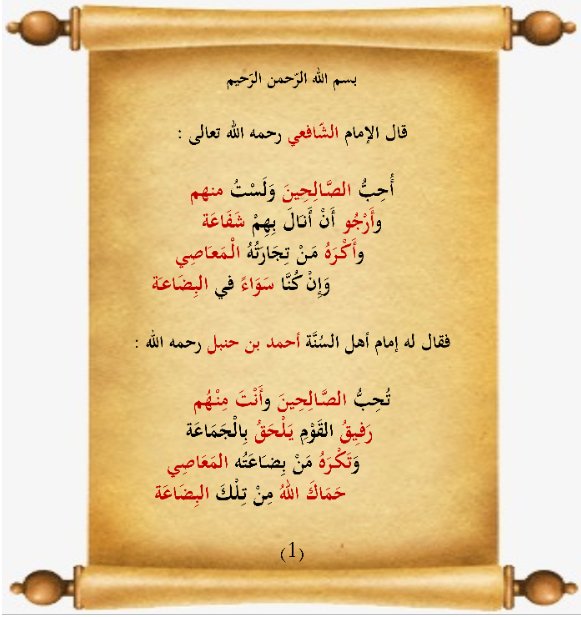 بسم الله الرّحمن الرّحيم
قال الإمام الشّافعي رحمه الله تعالى :
أُحِبُّ الصَّالِحِينَ وَلَسْتُ منهم
وأَرْجُو أَنْ أَنَالَ بِهِمْ شَفَاعَة
وأَكْرَهُ مَنْ تِجَارَتُهُ الْمَعَاصِي
وَإِنْ كُنَّا سَوَاءً في البِضَاعَة
فقال له إمام أهل السُنَّة أحمد بن حنبل رحمه الله :
تُحِبُّ الصَّالِحِينَ وأَنْتَ مِنْهُم
رَفِيقُ القَوْمِ يَلْحَقُ بِالْجَمَاعَة
وَتَكْرَهُ مَنْ بِضَاعَتُه المَعَاصِي
حَمَاكَ اللهُ مِنْ تِلْكَ البِضَاعَة
(1)